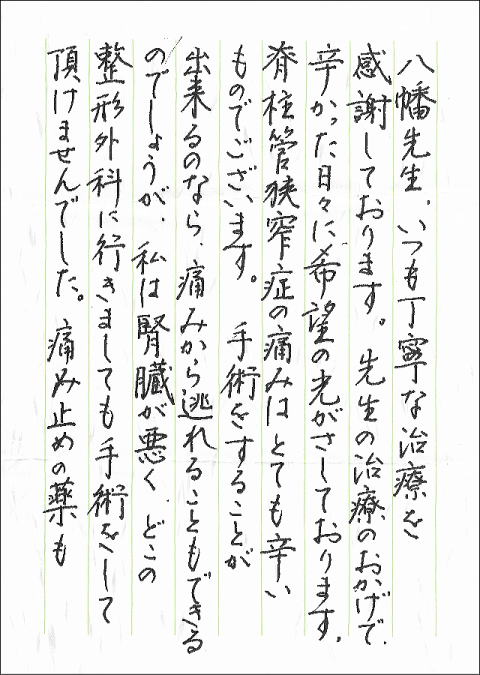 八幡先生、いつも丁寧な治療を
感謝しております。先生の治療のおかげで、
辛かった日々に希望の光がさしております。
脊柱管狭窄症の痛みはとても辛い
ものでございます。手術をすることが
出来るのなら、痛みから逃れることもできる
のでしょうが、私は腎臓が悪く、どこの
整形外科に行きましても手術をして
頂けませんでした。痛み止めの薬も